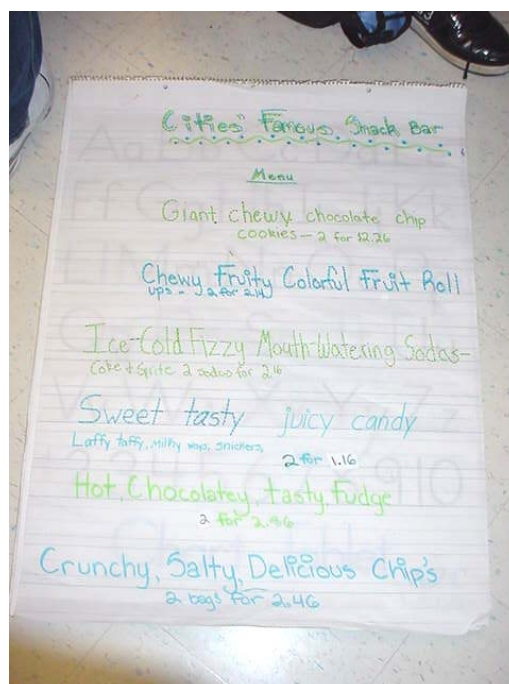 Cities' Famous Snack Bar
Menu
Giant chewy chocolate chip
cookies - 2 for $2.26
Chewy Fruity Colorful Fruit Roll
ups - 2 for
Ice-Cold Fizzy Mouth-Watering Sodas-
Coke & Sprite 2 sodas for 2.16
Sweet tasty juicy candy
Laffy taffy, milky ways, snickers,
2 for 1.16
Hot, Chocolatey, tasty, Fudge
2 for 2.96
Crunchy, Salty, Delicious Chip's
2 bags for 2.46